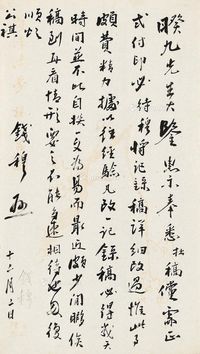 暌九先生大鑒惠示奉悉拙稿僅需正
式付印必待穆將記錄稿詳細改過惟此事
頗費精力據以往經驗凡改一記錄稿必得幾天
時間並不比自撰一文為易而最近頗少閒暇俟
稿到再看情形要之不能急遽相待也匆復
順頌
公祺
錢穆
十二月二日